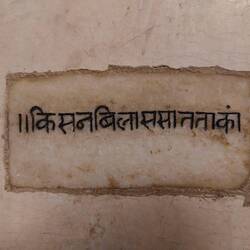 ॥किसनबिलाससातताकां